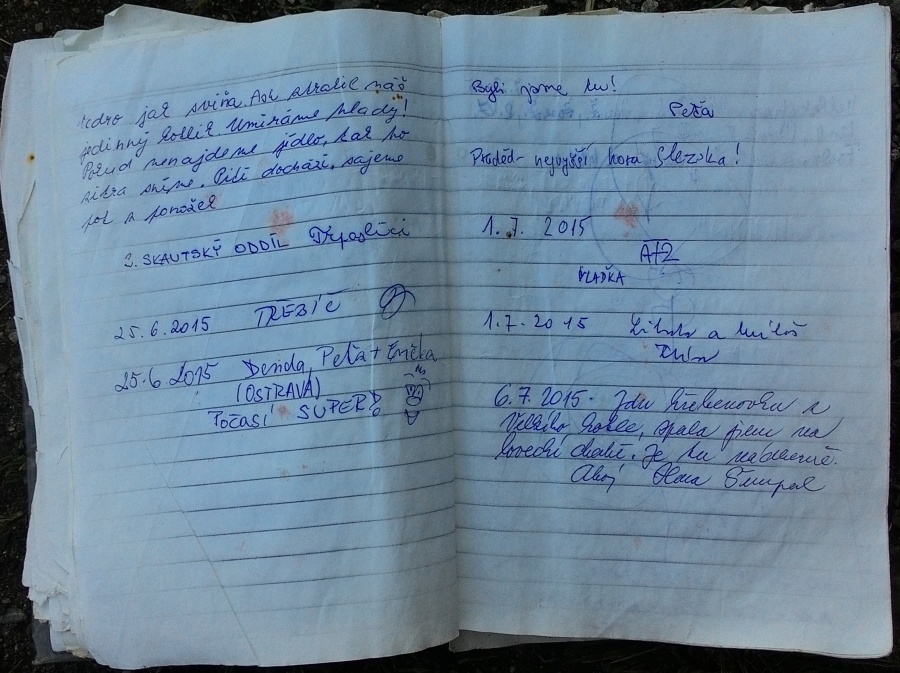 jak sviňa. Ash ztratil náš
jedinný kotlík. Umíráme hlady!
Pokud nenajdeme jídlo, tak ho
zítra sníme. Pití dochází, sajeme
pot z ponožek
3. SKAUTSKÝ ODDÍL Trpaslíci
25.6.2015 TŘEBÍČ
25.6 2015 Denda, Peťa +
(OSTRAVA)
Počasí SUPER!
Byli jsme tu!
Peťa
Praděd - nejvyšší hora Slezska!
1.7. 2015
VLAĎKA
1.7.2015 a Miloš
6.7.2015. Jdu hřebenovku z
kotle, spala jsem na
lovecké chatě. Je tu nádherně.
Ahoj